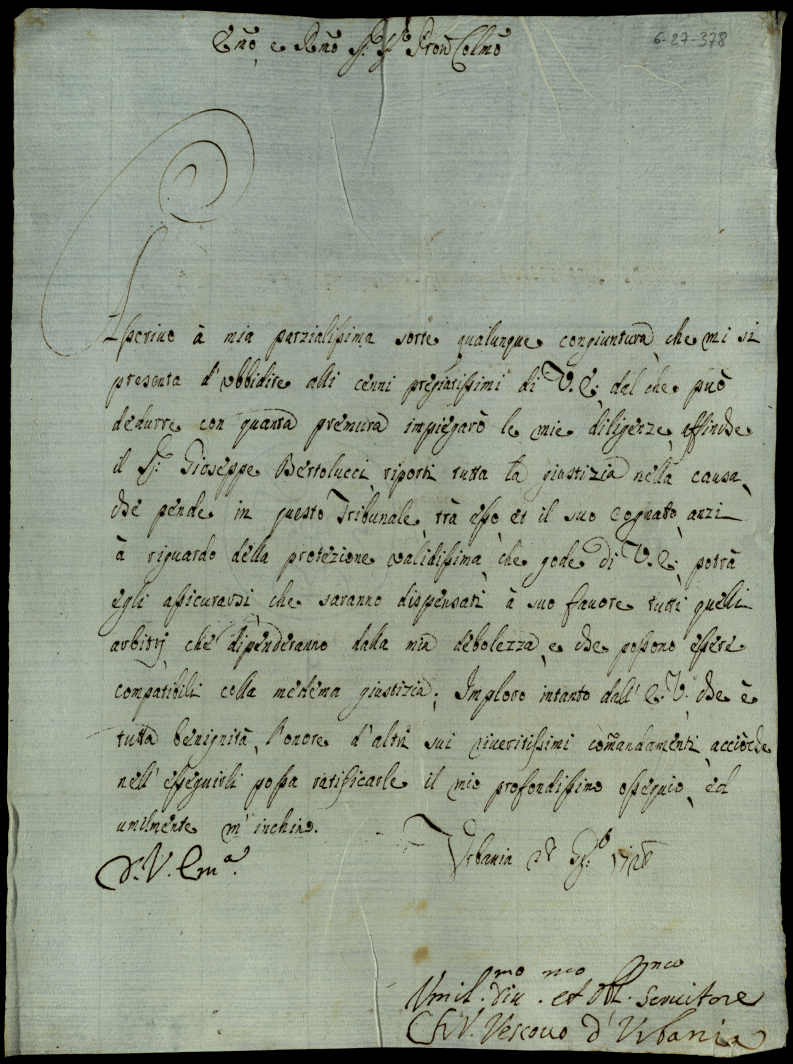 6-27-378
Emõ e Rmõ Sig.r Sig.r Prõn Colmõ
Ascrivo à mia parzialissima sorte qualunque congiuntura, che mi si
presenta d'ubbidire alli cenni pregiatissimi di V. E: dal che può
dedurre con quanta premura impiegarò le mie diligenze, affinche
il Sig.r Gioseppe Bertolucci riporti tutta la giustizia nella causa,
che pende in questo Tribunale, trà esso et il suo cognato, anzi
à riguardo della protezione validissima, che gode di V. E: potrà
egli assicurarsi che saranno dispensati à suo favore tutti quelli
arbitrj che dipenderanno dalla mia debolezza, e che possono essere
compatibili colla medema giustizia; Imploro intanto dall' E. V. che è
tutta benignità, l'onore d'altri suoi riveritissimi comandamenti, acciòche
nell' esseguirli possa ratificarle il mio profondissimo ossequio, ed
umilmente m'inchino.
D. V. Em.a
Urbania 1728
Umil.mo Div.mo et Obl.mo Servitore
Vescovo d'Urbania